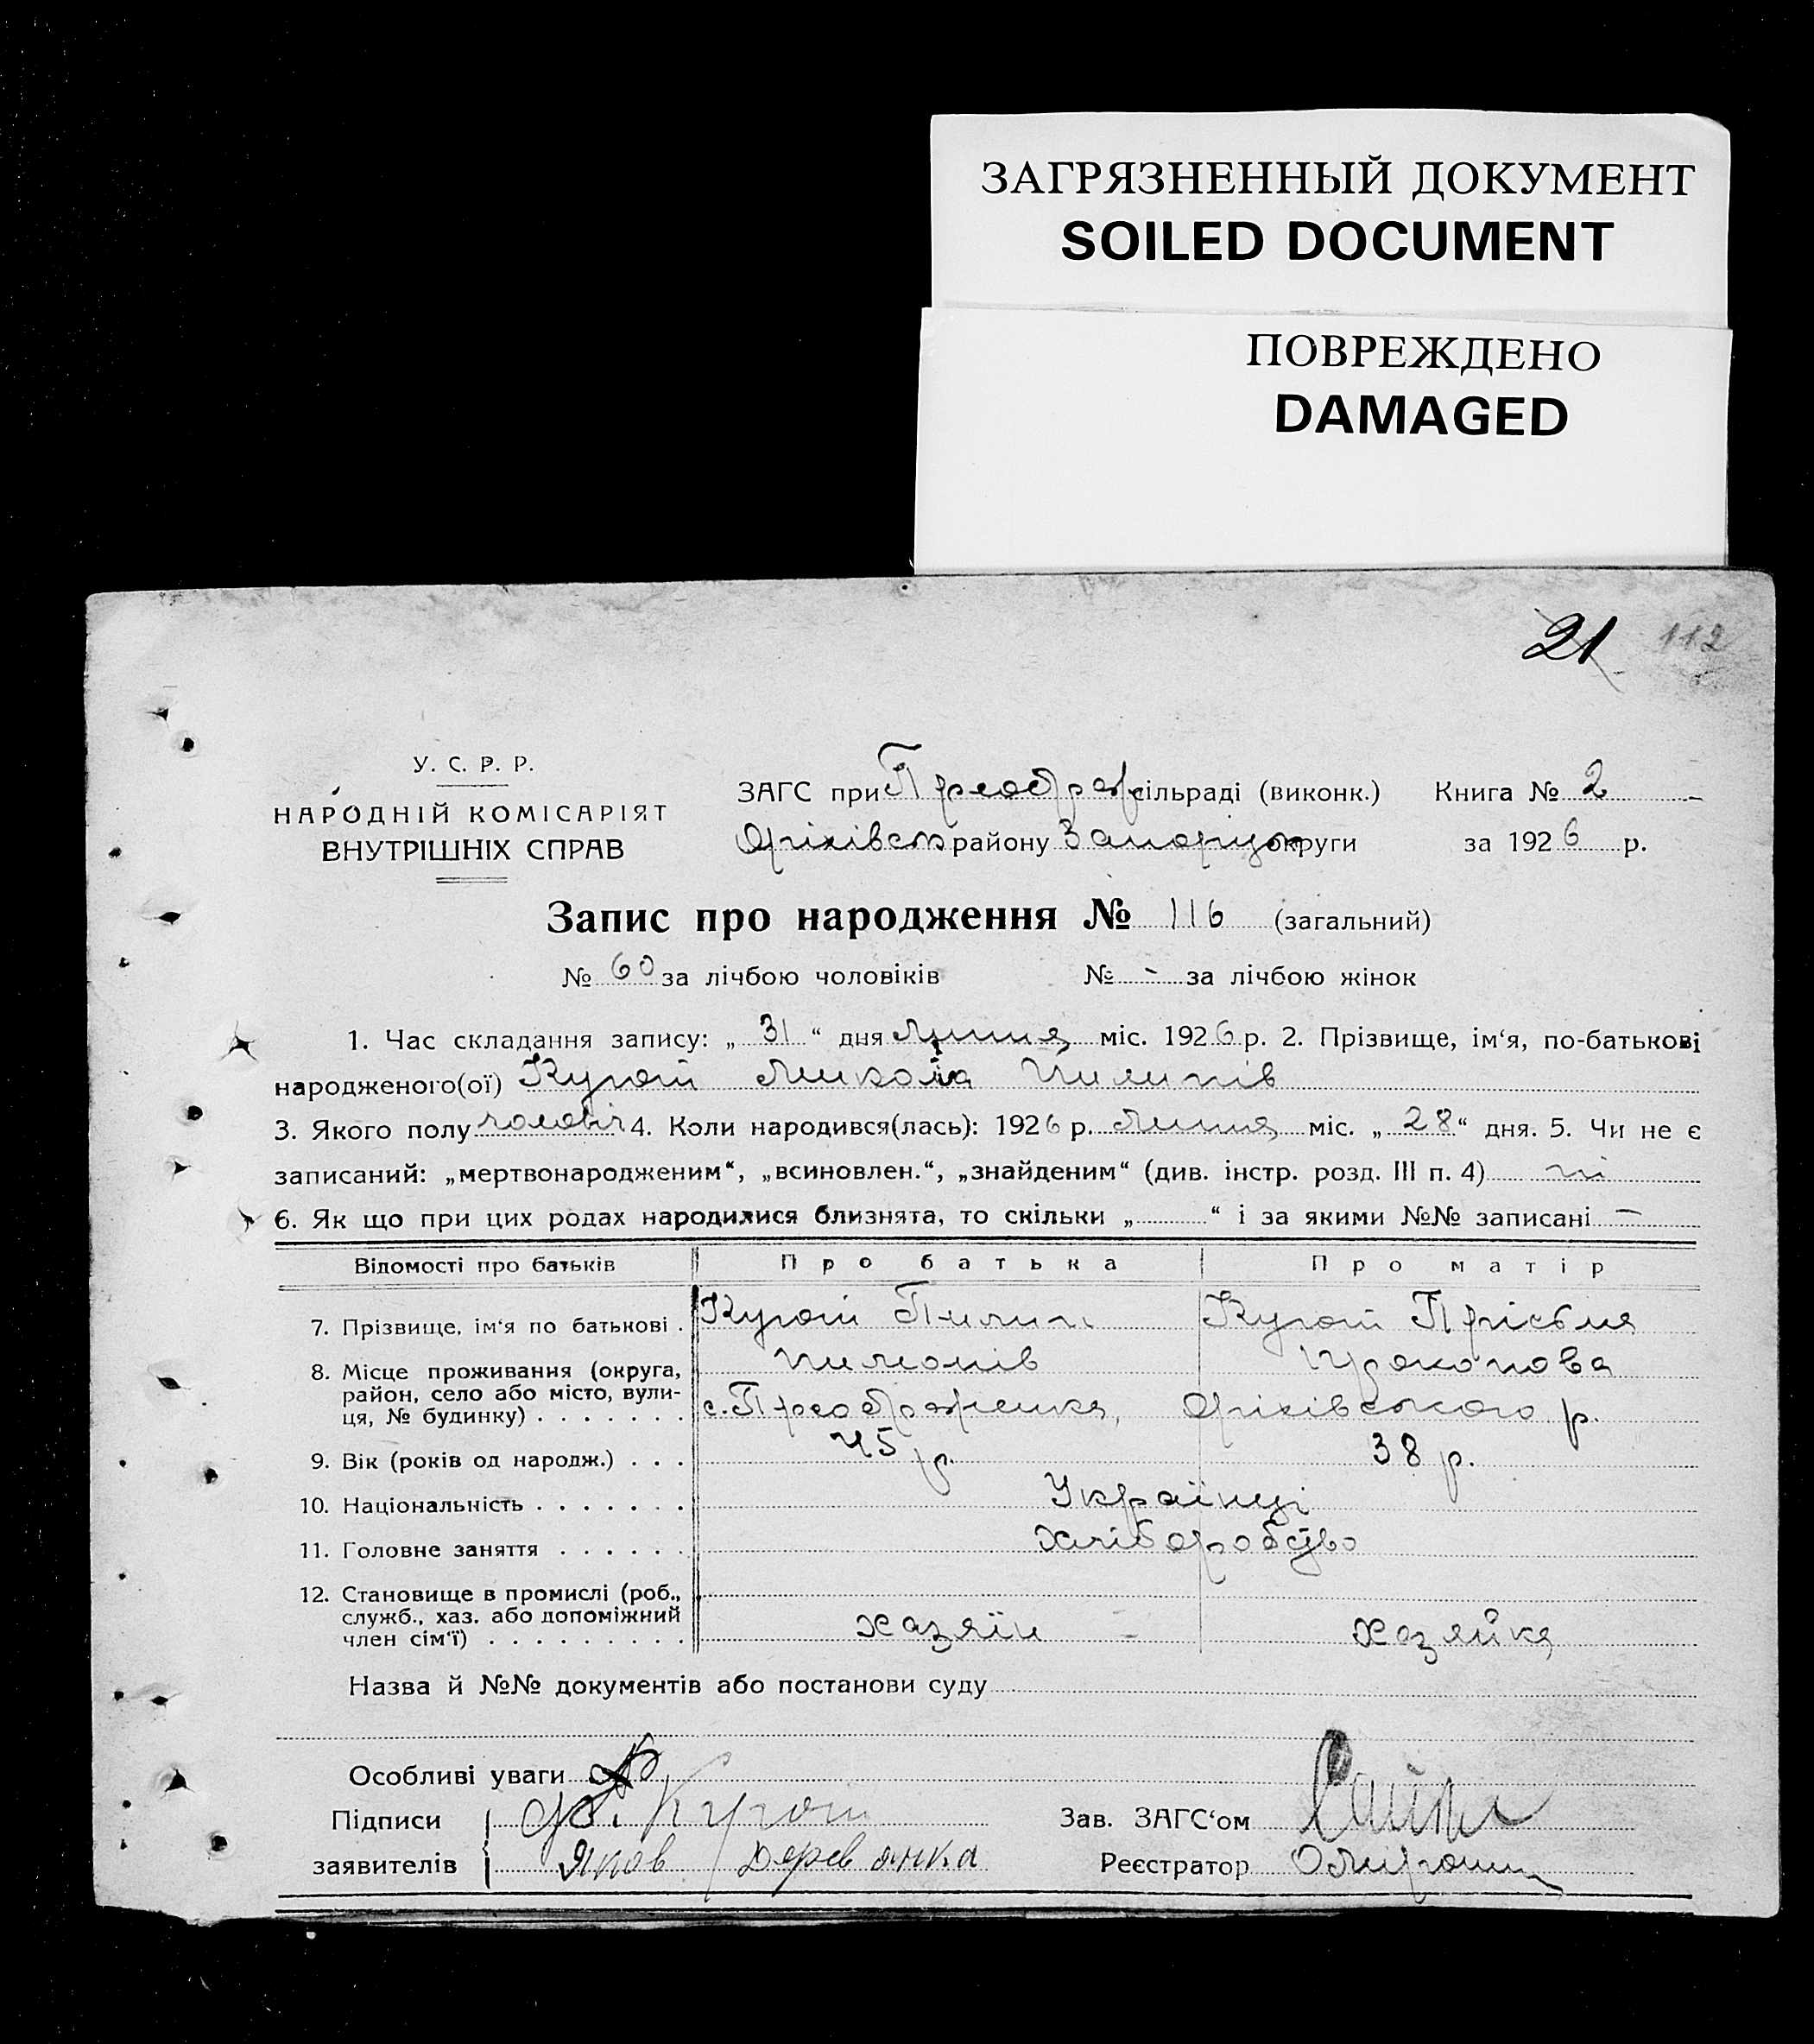 ЗАГРЯЗНЕННЫЙ ДОКУМЕНТ
SOILED DOCUMENT
ПОВРЕЖДЕНО
DAMAGED
21 112
У. С. Р. Р.
НАРОДНІЙ КОМІСАРІЯТ
ВНУТРІШНІХ СПРАВ
ЗАГС при Преображ сільраді (виконк.) Книга № 2 –
Оріхівськ району Запорізьк округи за 1926 р.
Запис про народження № 116 (загальний)
№ 60 за лічбою чоловіків № - за лічбою жінок
1. Час складання запису: „ 31 “ дня Липня міс. 1926 р. 2. Прізвище, ім‘я, по-батькові
народженого(ої) Микола Пилипів
3. Якого полу чоловіч 4. Коли народився(лась): 1926 р. Липня міс. „ 28 “ дня. 5. Чи не є
записаний: „мертвонародженим“, „всиновлен.“, „знайденим“ (див. інстр. розд. III п. 4) ні
6. Як що при цих родах народилися близнята, то скільки „ “ і за якими №№ записані —
Відомості про батьків Про батька Про матір
7. Прізвище, ім‘я по батькові . Пилип
8. Місце проживання (округа, Прокопова
район, село або місто, вули-
ця, № будинку) . . . . . . . с. Преображенка, Оріхівського р.
9. Вік (років од народж.) . . . 45 р. 38 р.
10. Національність . . . . . . . Українці
11. Головне заняття . . . . . . Хліборобство
12. Становище в промислі (роб.,
служб., хаз. або допоміжний
член сім‘ї) . . . . . . . . . хазяїн - хазяйка
Назва й №№ документів або постанови суду
Особливі уваги
Підписи Зав. ЗАГС‘ом
заявителів Яков Деревянка Реєстратор